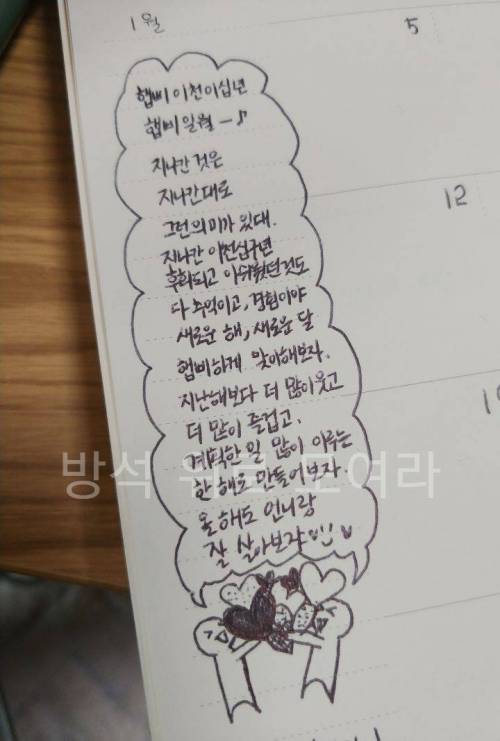 1월
5
12
햅삐 이천이십년
햅삐 일월 ~♪
지나간 것은
지나간대로
그런 의미가 있대.
지나간 이천십구년
후회되고 아쉬웠던것도
다 추억이고, 경험이야
새로운 해, 새로운 달
햅삐하게 맞이해보자.
지난해보다 더 많이 웃고
더 많이 즐겁고,
계획한 일 많이 이루는
한 해로 만들어보자.
올 해도 언니랑
잘 살아보쟈
방석 위로 모여라